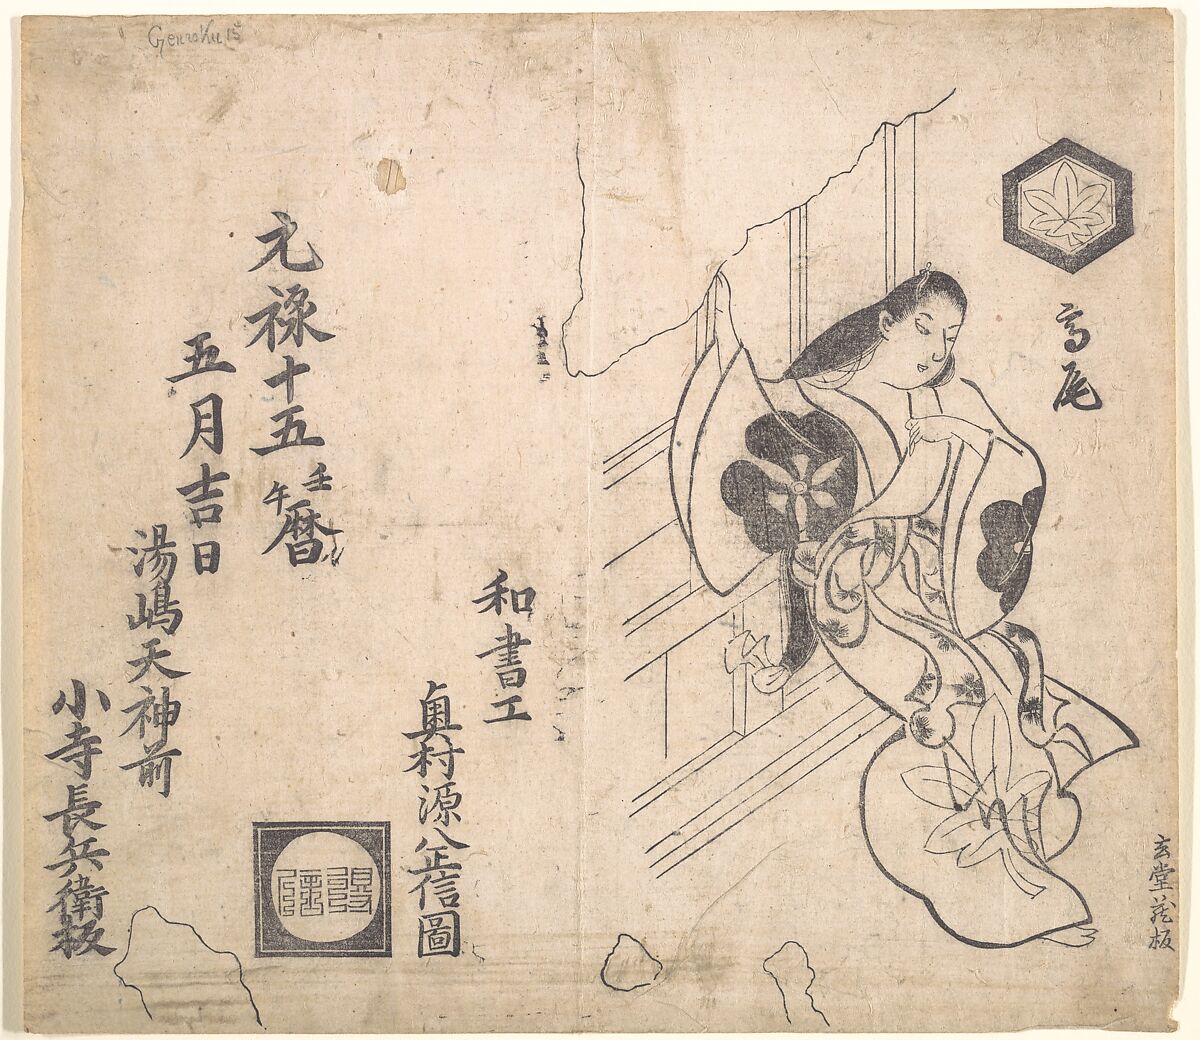 Genroku 15
高尾
玄堂蔵板
和書工
奥村源八正信圖
元禄十五壬午暦
五月吉日
湯嶋天神前
小寺長兵衛板